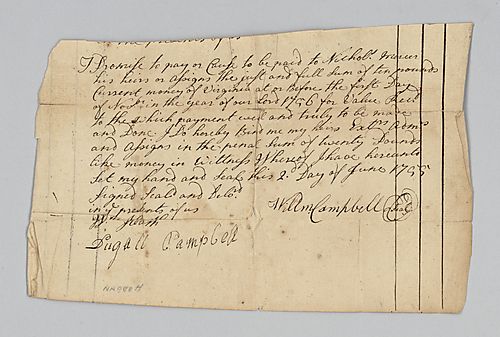 I Promise to pay or Cause to be paid to Nichols. Mercer
his heirs or Assigns the Just and full Sum of ten pounds
Current money of Virginia at or Before the first Day
of Novbr. in the year of our Lord 1756 for Value Recd.
to the which payment well and truly to be made
and Done I Do hereby Bind me my heirs Exrs. Admrs
and Assigns in the penal Sum of twenty Pounds
like money in Witness Whereof I have hereunto
Set my hand and Seal this 2d. Day of June 1755
Signed Seald and Delvd.
in ye. presents of us
Willm Campbell Seal
Dugall Campbell